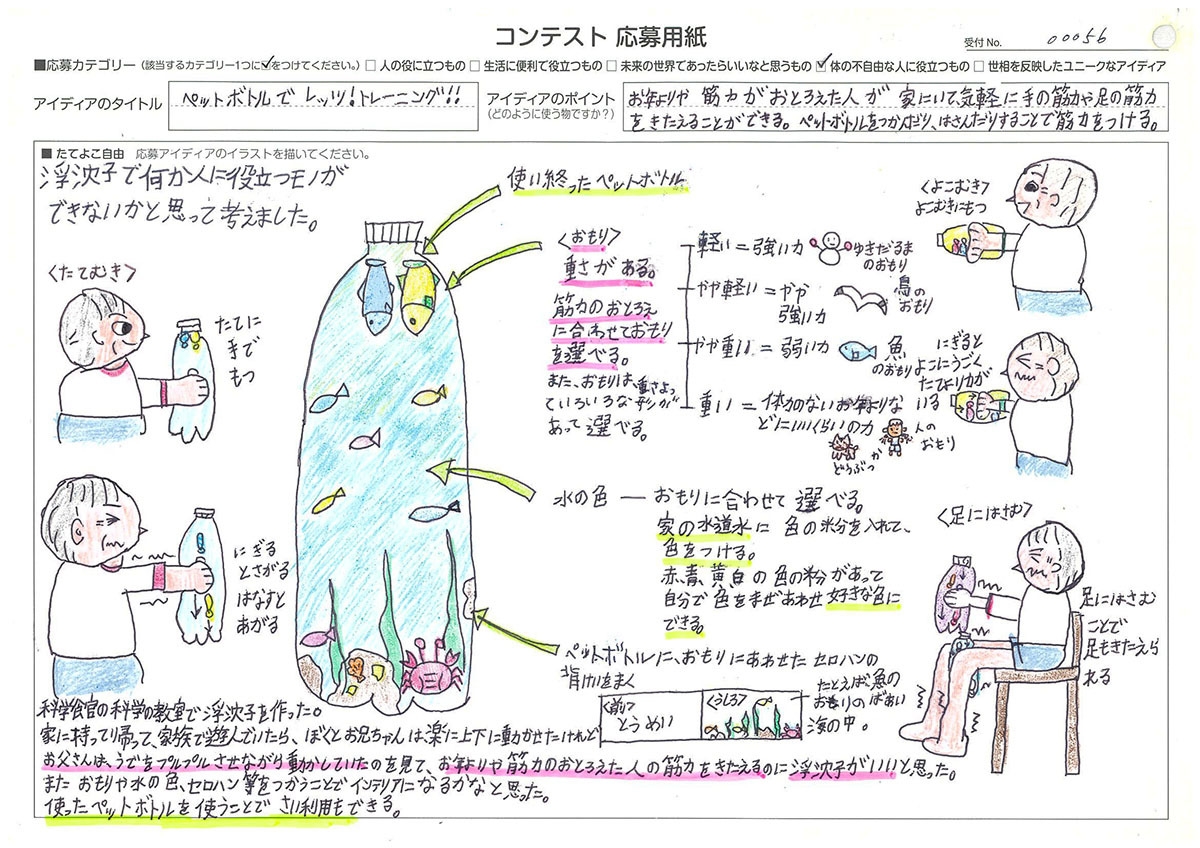 コンテスト 応募用紙
受付 No. 00056
■応募カテゴリー（該当するカテゴリー1つに☑をつけてください。）□人の役に立つもの □生活に便利で役立つもの □未来の世界であったらいいなと思うもの ☑体の不自由な人に役立つもの □世相を反映したユニークなアイディア
アイディアのタイトル
ペットボトルで レッツ！トレーニング！！
アイディアのポイント
（どのように使う物ですか？）
お年よりや 筋力がおとろえた人が 家にいて、気軽に手の筋力や足の筋力
をきたえることができる。ペットボトルをつかんだり、はさんだりすることで筋力をつける。
■ たてよこ自由　応募アイディアのイラストを描いてください。
浮沈子で何か人に役立つモノが
できないかと思って考えました。
使い終ったペットボトル
〈たてむき〉
たてに
手で
もつ
にぎる
とさがる
はなすと
あがる
〈おもり〉
重さがある。
筋力のおとろえ
に合わせておもり
を選べる。
また、おもりは、重さよっ
ていろいろな形が
あって選べる。
軽い＝強い力
ゆきだるま
のおもり
やや軽い＝やや
強い力
鳥の
おもり
やや重い＝弱い力
魚
のおもり
重い＝体力のないお年よりな
どにいいくらいの力
どうぶつ
か
人の
おもり
〈よこむき〉
よこむきにもつ
にぎると
よこにうごく
たてより力が
いる
水の色 ― おもりに合わせて 選べる。
家の水道水に 色の粉を入れて、
色をつける。
赤、青、黄、白の色の粉があって
自分で色をまぜあわせ 好きな色に
できる。
〈足にはさむ〉
足にはさむ
ことで
足もきたえら
れる
ペットボトルに、おもりにあわせた セロハンの
背けいをまく
〈前〉
とうめい
〈うしろ〉
たとえば魚の
おもりのばあい
海の中。
科学館の科学の教室で浮沈子を作った。
家に持って帰って、家族で遊んでいたら、ぼくとお兄ちゃんは楽に上下に動かせたけれど
お父さんは、うでをプルプルさせながら動かしていたのを見て、お年よりや筋力のおとろえた人の筋力をきたえるのに浮沈子がいいと思った。
また おもりや水の色、セロハン等をつかうことでインテリアになるかなと思った。
使ったペットボトルを使うことで さい利用もできる。